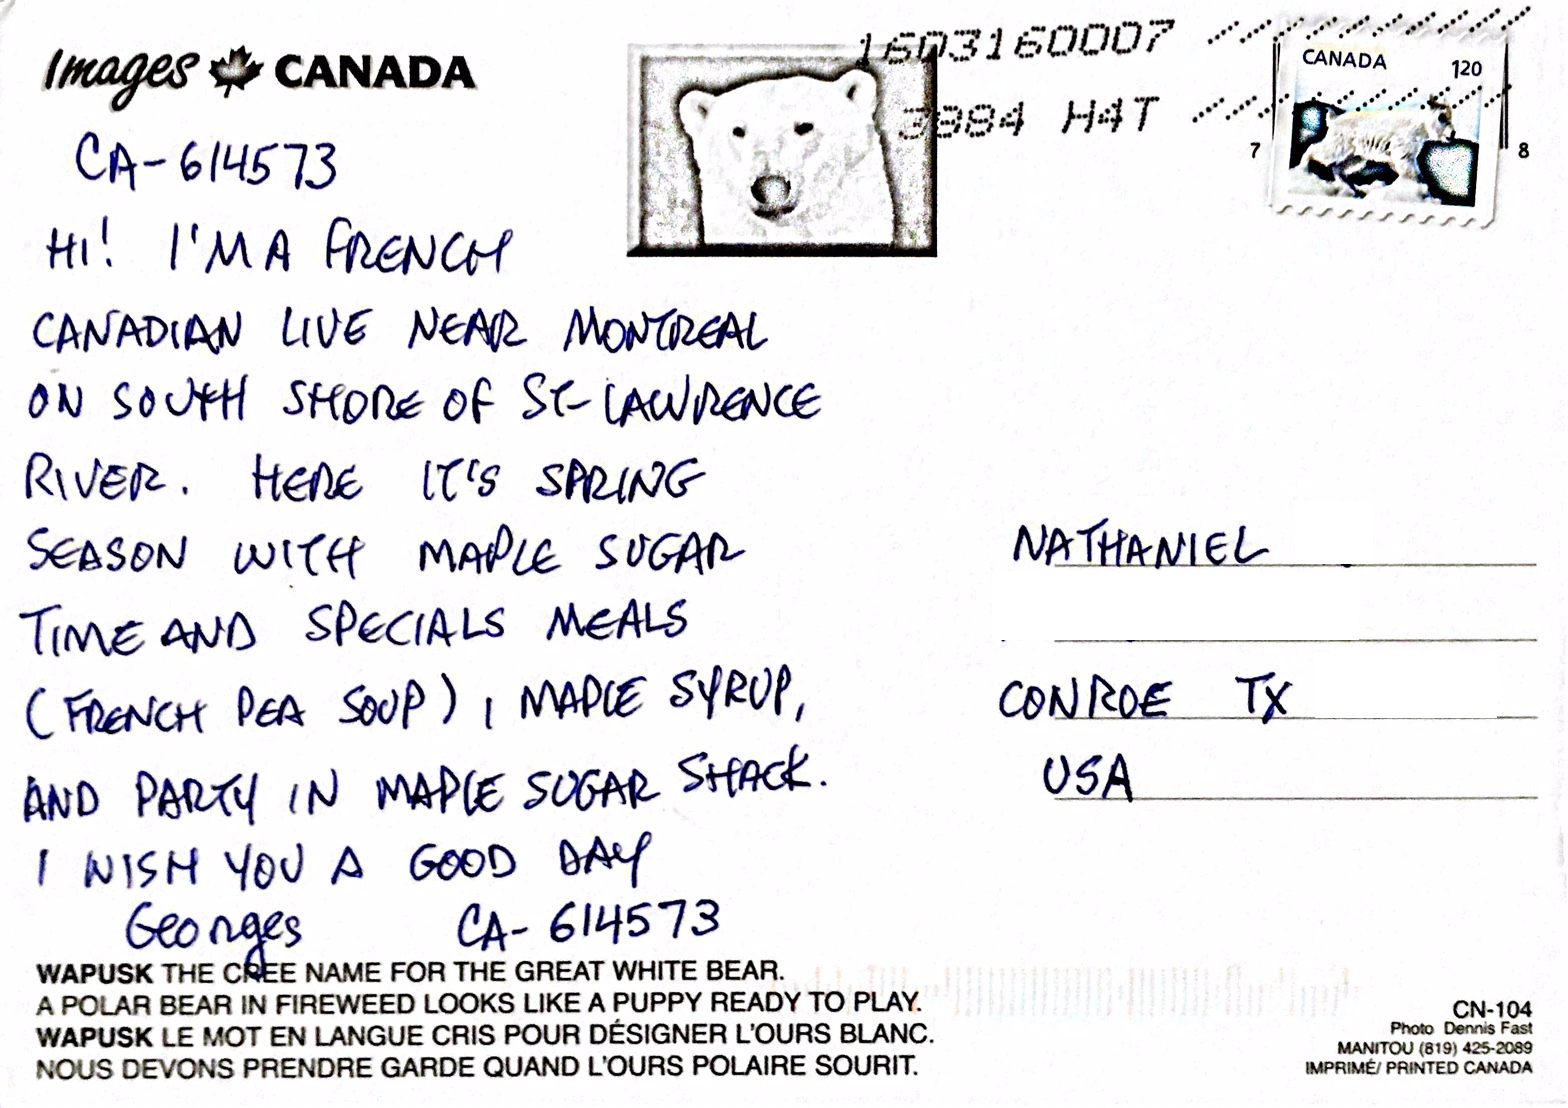 Images CANADA
1603160007
3884 H4T
CANADA 120
7 8
CA-614573
HI! I'M A FRENCH
CANADIAN LIVE NEAR MONTREAL
ON SOUTH SHORE OF ST-LAWRENCE
RIVER. HERE IT'S SPRING
SEASON WITH MAPLE SUGAR
TIME AND SPECIALS MEALS
(FRENCH PEA SOUP), MAPLE SYRUP,
AND PARTY IN MAPLE SUGAR SHACK.
I WISH YOU A GOOD DAY
Georges CA-614573
NATHANIEL
CONROE TX
USA
WAPUSK THE CREE NAME FOR THE GREAT WHITE BEAR.
A POLAR BEAR IN FIREWEED LOOKS LIKE A PUPPY READY TO PLAY.
WAPUSK LE MOT EN LANGUE CRIS POUR DÉSIGNER L'OURS BLANC.
NOUS DEVONS PRENDRE GARDE QUAND L'OURS POLAIRE SOURIT.
CN-104
Photo Dennis Fast
MANITOU (819) 425-2089
IMPRIMÉ/ PRINTED CANADA